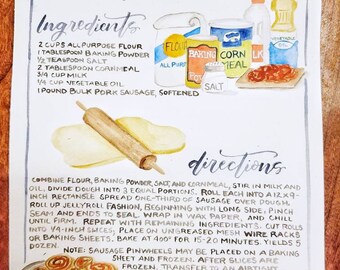 Ingredients
2 CUPS ALL PURPOSE FLOUR
1 TABLESPOON BAKING POWDER
½ TEASPOON SALT
2 TABLESPOON CORNMEAL
3/4 CUP MILK
1/4 CUP VEGETABLE OIL
1 POUND BULK PORK SAUSAGE, SOFTENED
FLOUR
ALL PUR
BAKING
CORN
MEAL
SALT
directions
COMBINE FLOUR, BAKING POWDER, SALT, AND CORNMEAL, STIR IN MILK AND
OIL. DIVIDE DOUGH INTO 3 EQUAL PORTIONS. ROLL EACH INTO A 12 X 9-
INCH RECTANGLE SPREAD ONE-THIRD OF SAUSAGE OVER DOUGH.
ROLL UP JELLYROLL FASHION, BEGINNING WITH LONG SIDE, PINCH
SEAM AND ENDS TO SEAL. WRAP IN WAX PAPER, AND CHILL
UNTIL FIRM. REPEAT WITH REMAINING INGREDIENTS. CUT ROLLS
INTO 1/4-INCH SLICES; PLACE ON UNGREASED MESH WIRE RACKS
OR BAKING SHEETS. BAKE AT 400° FOR 15-20 MINUTES. YIELDS 5
DOZEN. NOTE: SAUSAGE PINWHEELS MAY BE PLACED ON A BAKING
SHEET AND FROZEN. AFTER SLICES ARE
FROZEN, TRANSFER TO AN AIRTIGHT